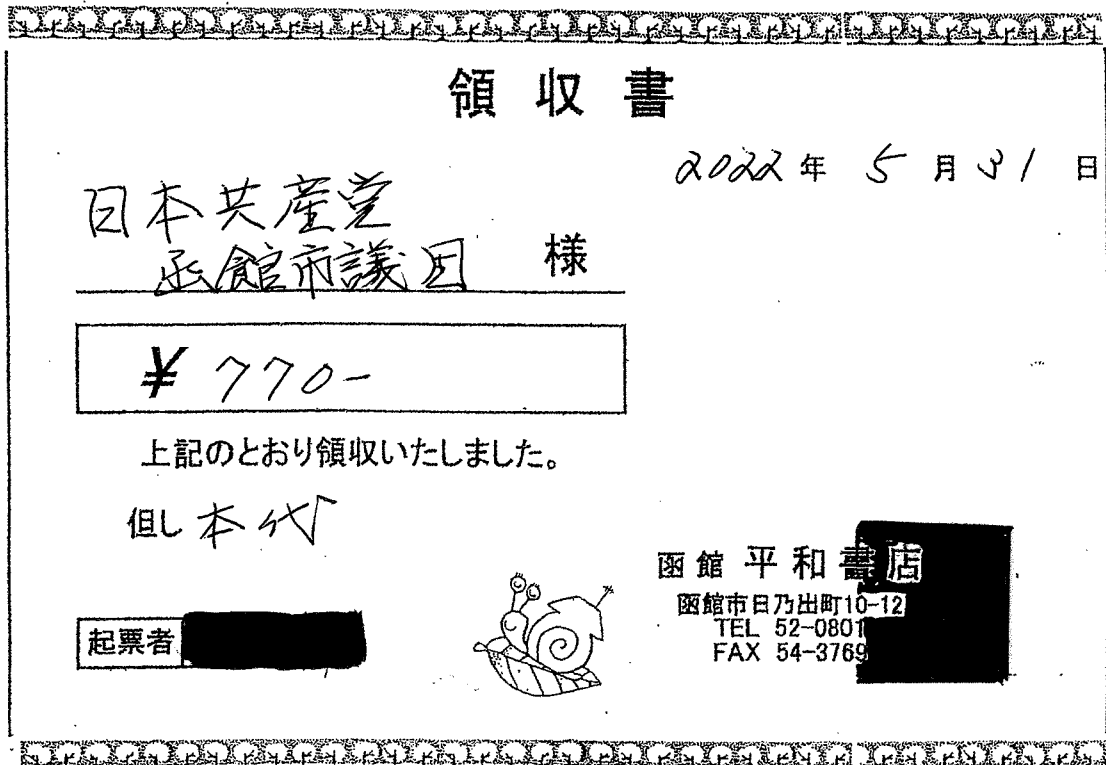 領収書
2022年 5月31日
日本共産党
函館市議団 様
¥ 770-
上記のとおり領収いたしました。
但し 本代
函館 平和書店
函館市日乃出町10-12
TEL 52-0801
FAX 54-3769
起票者